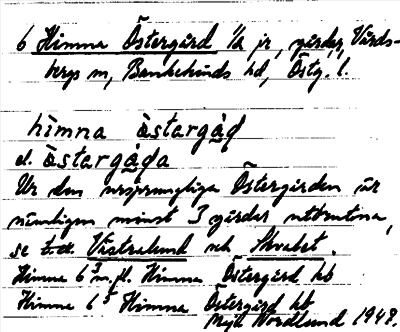 6 Himna Östergård 1/2 jr, gårdar, Vårds-
bergs sn, Bankekinds hd, Östg. l.
himna östargåd
el. östargåda
Ur den ursprungliga Östergården är
nämligen minst 3 gårdar utbrutna,
se t. ex. Västralund och Skvabet.
Himna 6 m. fl. Himna Östergård kb
Himna 6 Himna Östergård kb
Nordlund 1949.